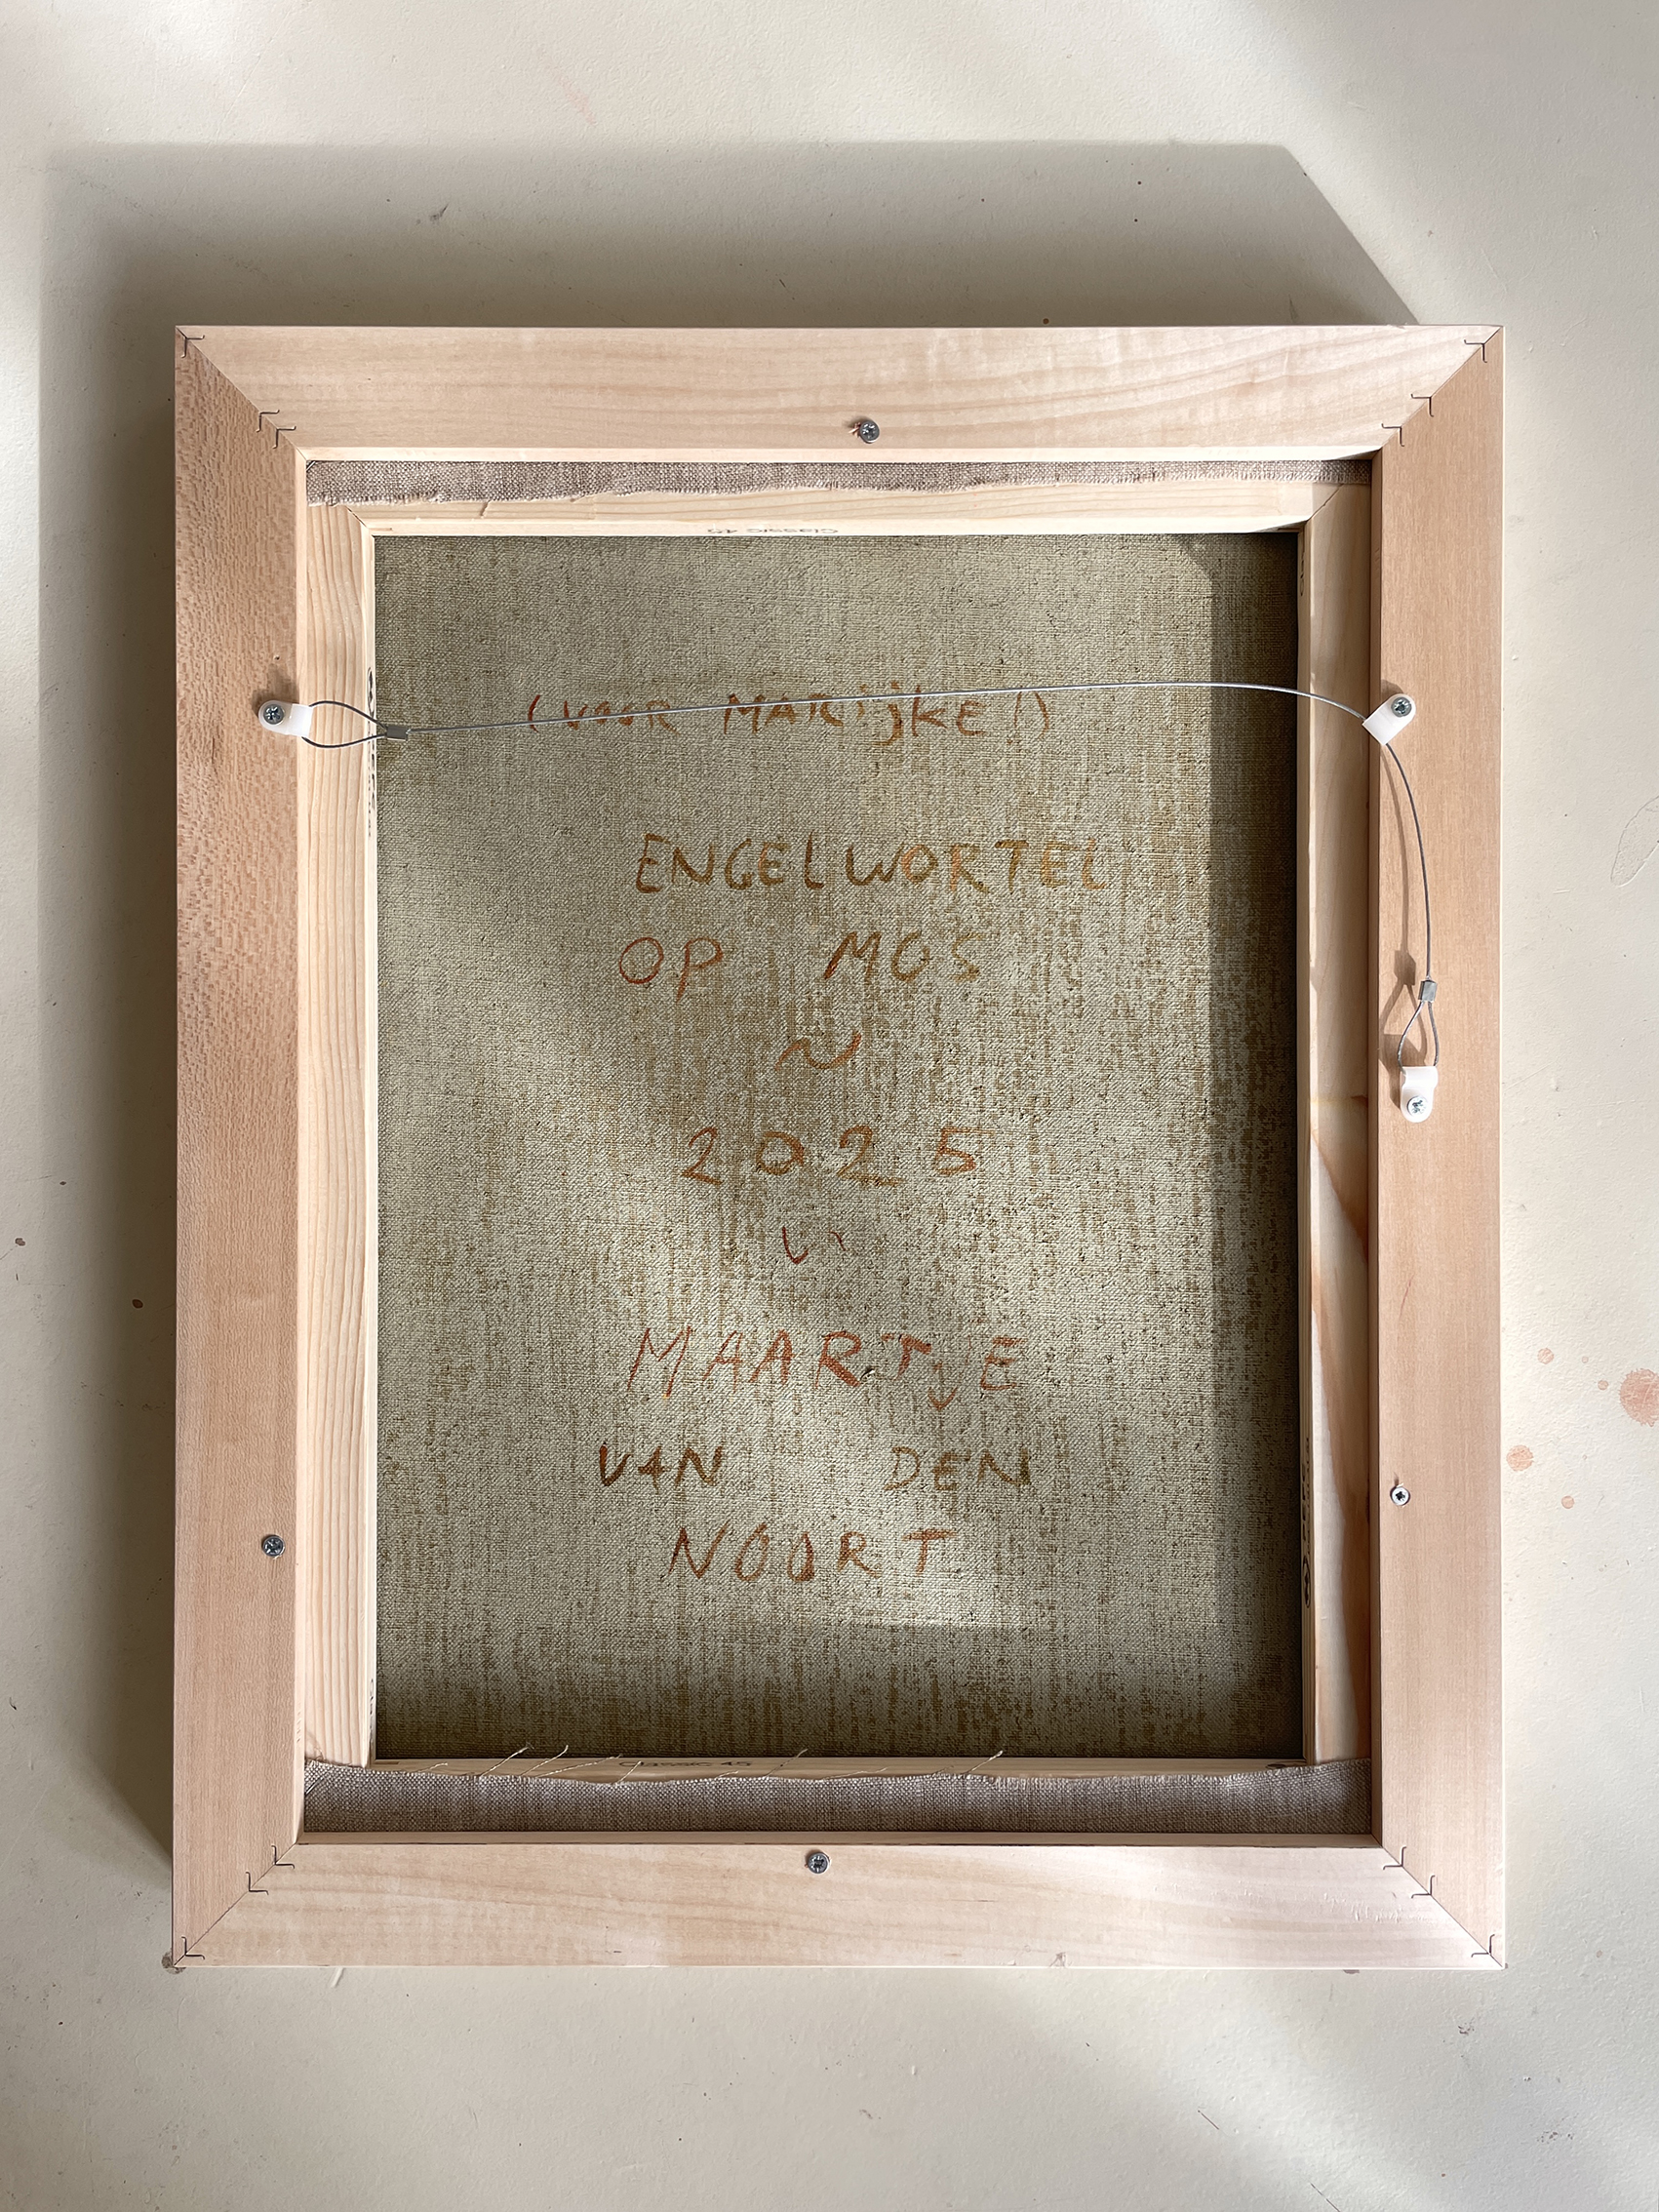 Classic 45
(VOOR MARijKE!)
ENGELWORTEL
OP MOS
~
2025
MAARTJE
VAN DEN
NOORT
Classic 45